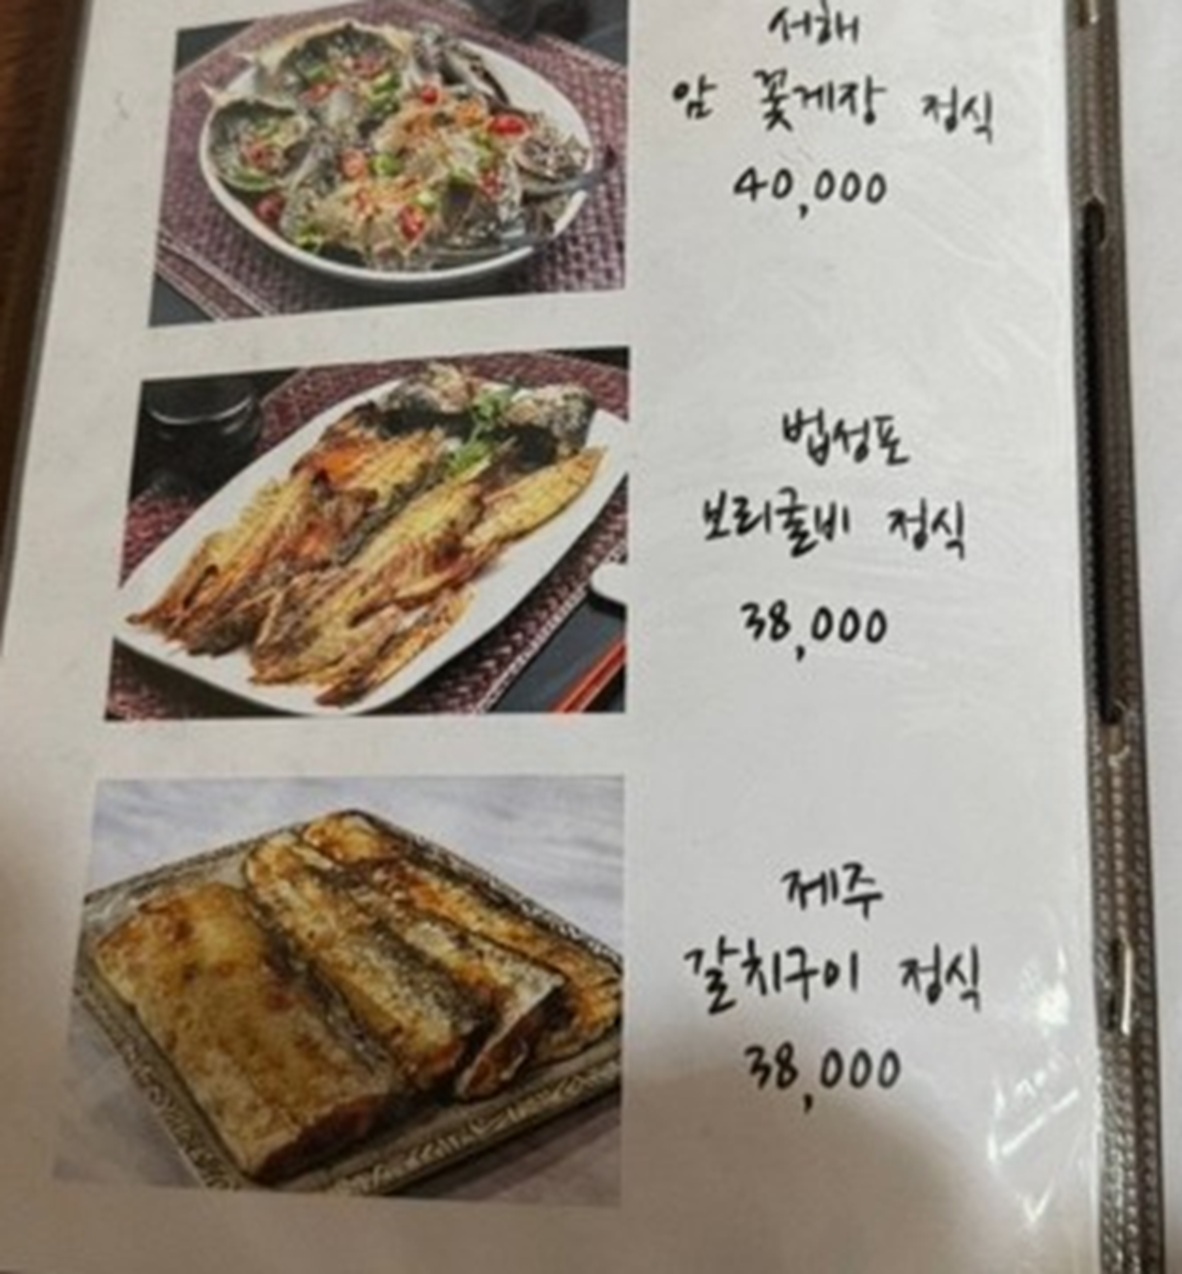 서해
암 꽃게장 정식
40,000
법성포
보리굴비 정식
38,000
제주
갈치구이 정식
38,000